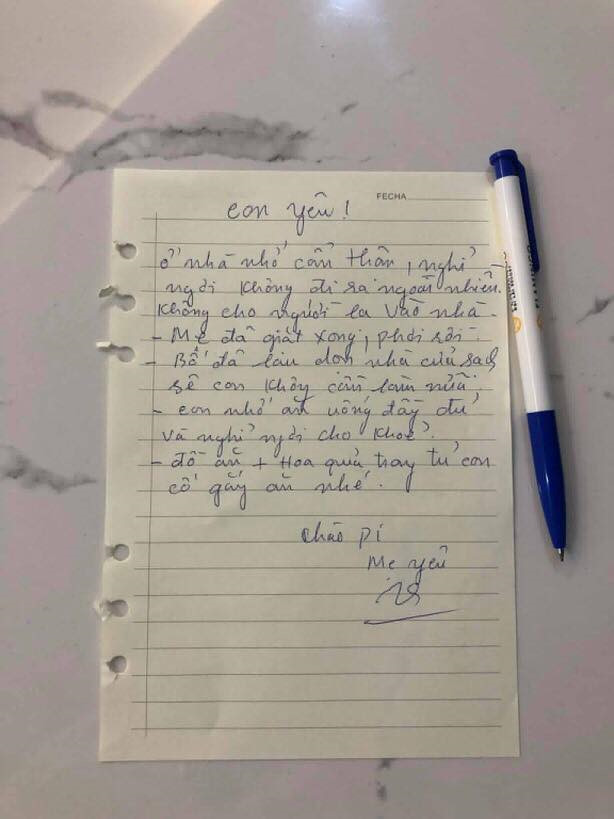 FECHA
con yêu!
ở nhà nhớ cẩn thận, nghỉ
ngơi không đi ra ngoài nhiều.
Không cho người lạ vào nhà.
- Mẹ đã giặt xong, phơi rồi.
- Bố đã lau dọn nhà cửa sạch
sẽ con không cần làm nữa.
- con nhớ ăn uống đầy đủ
và nghỉ ngơi cho khoẻ.
- đồ ăn + Hoa quả trong tủ con
cố gắng ăn nhé.
chào pí
Mẹ yêu